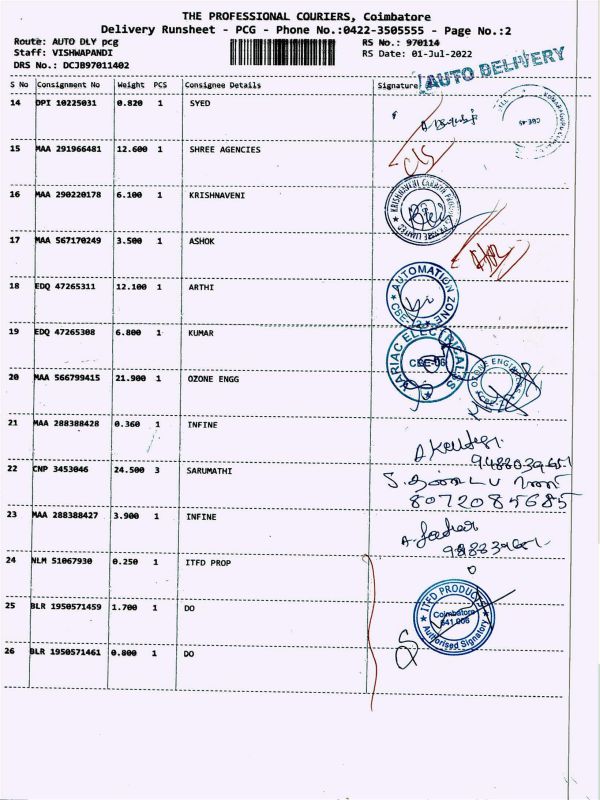 THE PROFESSIONAL COURIERS, Coimbatore
Delivery Runsheet - PCG - Phone No.:0422-3505555 - Page No.:2
Route: AUTO DLY pcg
RS No.: 970114
Staff: VISHWAPANDI
RS Date: 01-Jul-2022
DRS No.: DCJB97011402
AUTO DELIVERY
S No Consignment No Weight PCS Consignee Details Signature
14 DPI 10225031 0.820 1 SYED
CBE-45
15 MAA 291966481 12.600 1 SHREE AGENCIES
16 MAA 290220178 6.100 1 KRISHNAVENI
KRISHNAVENI
PRIVATE LIMITED
17 MAA 567170249 3.500 1 ASHOK
18 EDQ 47265311 12.100 1 ARTHI
AUTOMATION ZONE
19 EDQ 47265308 6.800 1 KUMAR
VARIAC ELECTRICALS
CBE-06
20 MAA 566799415 21.900 1 OZONE ENGG
OZONE
21 MAA 288388428 0.360 1 INFINE
22 CNP 3453046 24.500 3 SARUMATHI
8072085685
23 MAA 288388427 3.900 1 INFINE
24 NLM 51067930 0.250 1 ITFD PROP
25 BLR 1950571459 1.700 1 DO
ITFD PRODUCTS
Coimbatore
641 006
Authorised Signatory
26 BLR 1950571461 0.800 1 DO